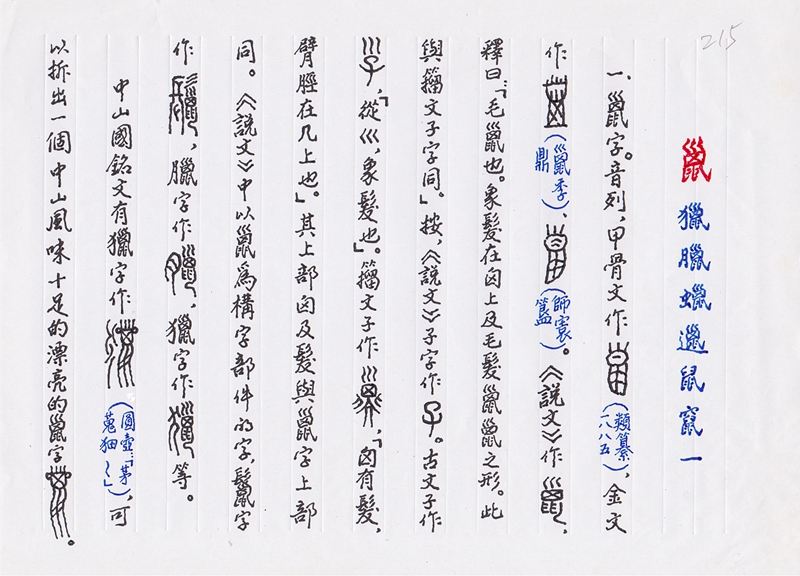 215
巤 獵 臘 蠟 邋 鼠 竄 一
一、巤字。音列,甲骨文作(類纂一八八五),金文
作(巤季鼎)、(師㝨簋)。《說文》作巤,
釋曰:「毛巤也。象髮在囟上及毛髮巤巤之形。此
與籀文子字同。」按,《說文》子字作子。古文子作
㜽,「從巛,象髮也」。籀文子作,「囟有髮,
臂脛在几上也。」其上部囟及髮與巤字上部
同。《說文》中以巤為構字部件的字,鬣字
作鬣,臘字作臘,獵字作獵等。
中山國銘文有獵字作(圓壺「茅蒐~」),可
以拆出一個中山風味十足的漂亮的巤字。